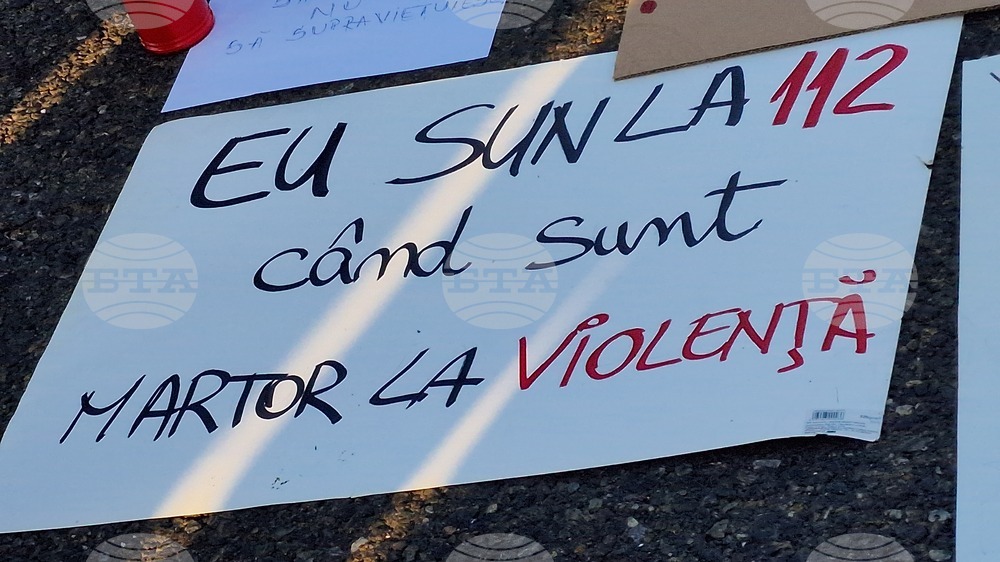 NU
SĂ SUPRAVIEȚUIESC
EU SUN LA 112
când sunt
MARTOR LA VIOLENȚĂ
БТА БТА БТА